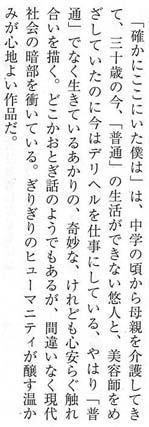 「確かにここにいた僕は」は、中学の頃から母親を介護してき
て、三十歳の今、「普通」の生活ができない悠人と、美容師をめ
ざしていたのに今はデリヘルを仕事にしている、やはり「普
通」でなく生きているあかりの、奇妙な、けれども心安らぐ触れ
合いを描く。どこかおとぎ話のようでもあるが、間違いなく現代
社会の暗部を衝いている。ぎりぎりのヒューマニティが醸す温か
みが心地よい作品だ。